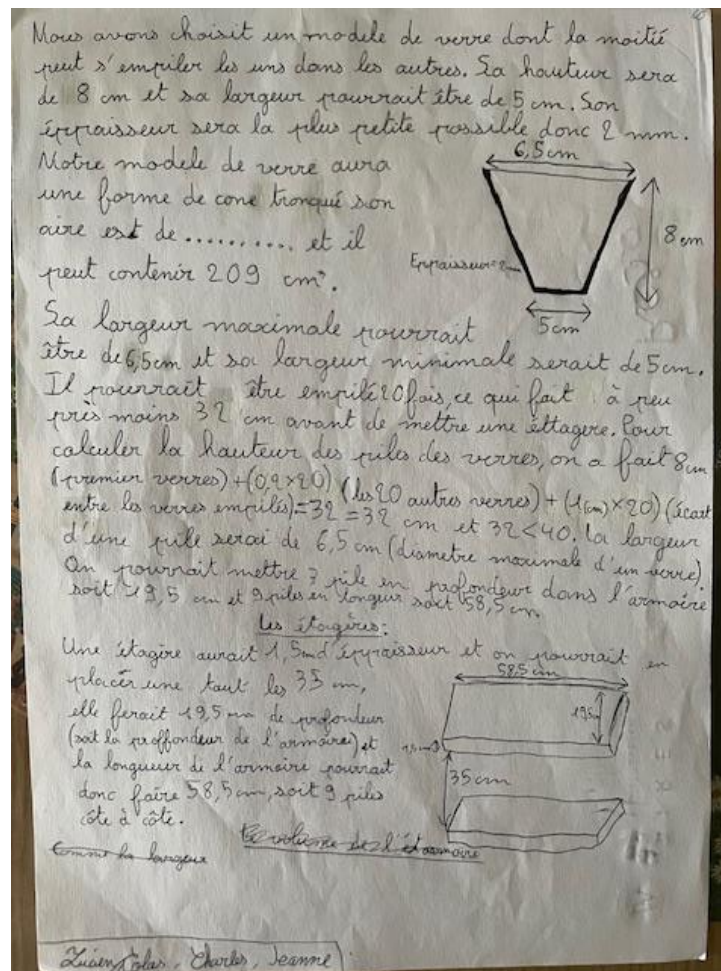 Nous avons choisit un modele de verre dont la moitié
peut s'empiler les uns dans les autres. Sa hauteur sera
de 8 cm et sa largeur pourrait être de 5 cm. Son
éppaisseur sera la plus petite possible donc 2 mm.
Notre modele de verre aura
une forme de cone tronqué son
aire est de .......... et il
peut contenir 209 cm³.
6,5cm
8 cm
Eppaisseur=2mm
5cm
Sa largeur maximale pourrait
être de 6,5cm et sa largeur minimale serait de 5cm.
Il pourrait être empilé 20 fois, ce qui fait à peu
près moins 32 cm avant de mettre une éttagere. Pour
calculer la hauteur des piles des verres, on a fait 8cm
(premier verres)+(0,2×20) (les 20 autres verres) + (1(cm)×20) (écart
entre les verres empilés)=32 =32 cm et 32<40. La largeur
d'une pile serai de 6,5 cm (diametre maximale d'un verre).
On pourrait mettre 3 pile en profondeur dans l'armoire
soit 19,5 cm et 9 piles en longeur soit 58,5 cm.
Les étagères:
Une étagère aurait 1,5cm d'éppaisseur et on pourrait en
placer une tout les 35 cm,
elle ferait 19,5 cm de profondeur
(soit la proffondeur de l'armoire) et
la longueur de l'armoire pourrait
donc faire 58,5cm, soit 9 piles
côte à côte.
58,5cm
19,5
1,5cm
35cm
Comme la largeur
Le volume de l'armoire
Lucien, Colas, Charles, Jeanne